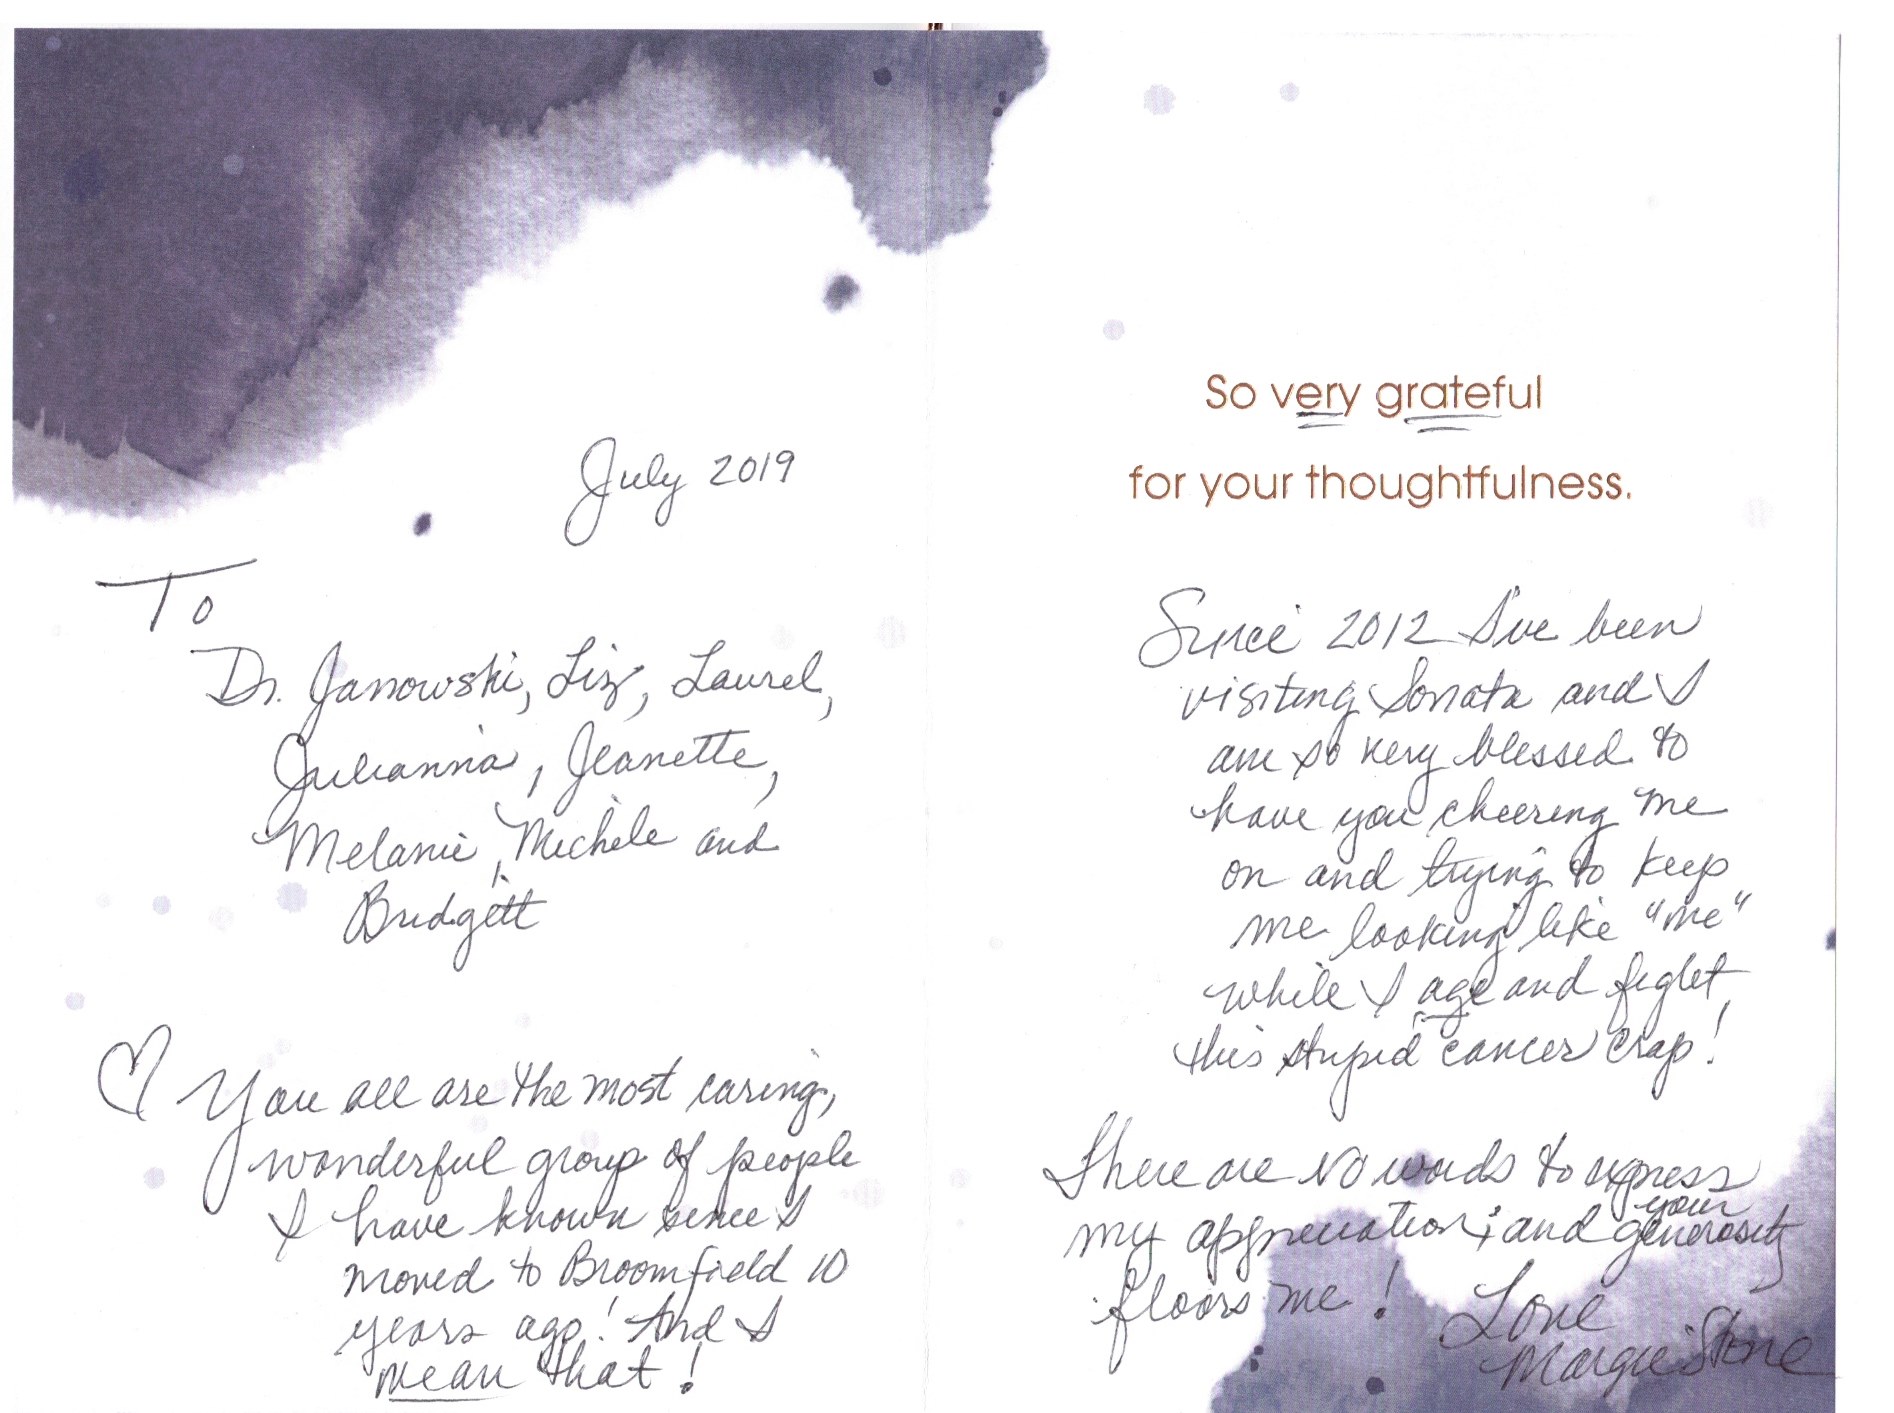 July 2019
To
Dr. Janowski, Liz, Laurel,
Julianna, Jeanette,
Melanie, Michele and
Bridgett
You all are the most caring,
wonderful group of people
I have known since I
moved to Broomfield 10
years ago! And I
mean that!
So very grateful
for your thoughtfulness.
Since 2012 I've been
visiting Sonata and I
am so very blessed to
have you cheering me
on and trying to keep
me looking like "me"
while I age and fight
this stupid cancer crap!
There are no words to express
my appreciation; and your generosity
floors me!
Love
Margie Stone